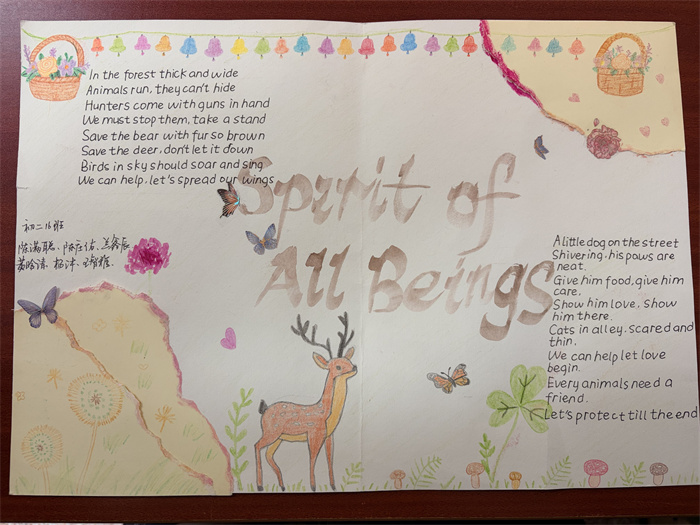 In the forest thick and wide
Animals run, they can't hide
Hunters come with guns in hand
We must stop them, take a stand
Save the bear with fur so brown
Save the deer, don't let it down
Birds in sky should soar and sing
We can help, let's spread our wings
Spirit of
All Beings
初二16班
A little dog on the street
Shivering, his paws are
neat.
Give him food, give him
care.
Show him love, show
him there.
Cats in alley, scared and
thin.
We can help let love
begin.
Every animals need a
friend.
Let's protect till the end